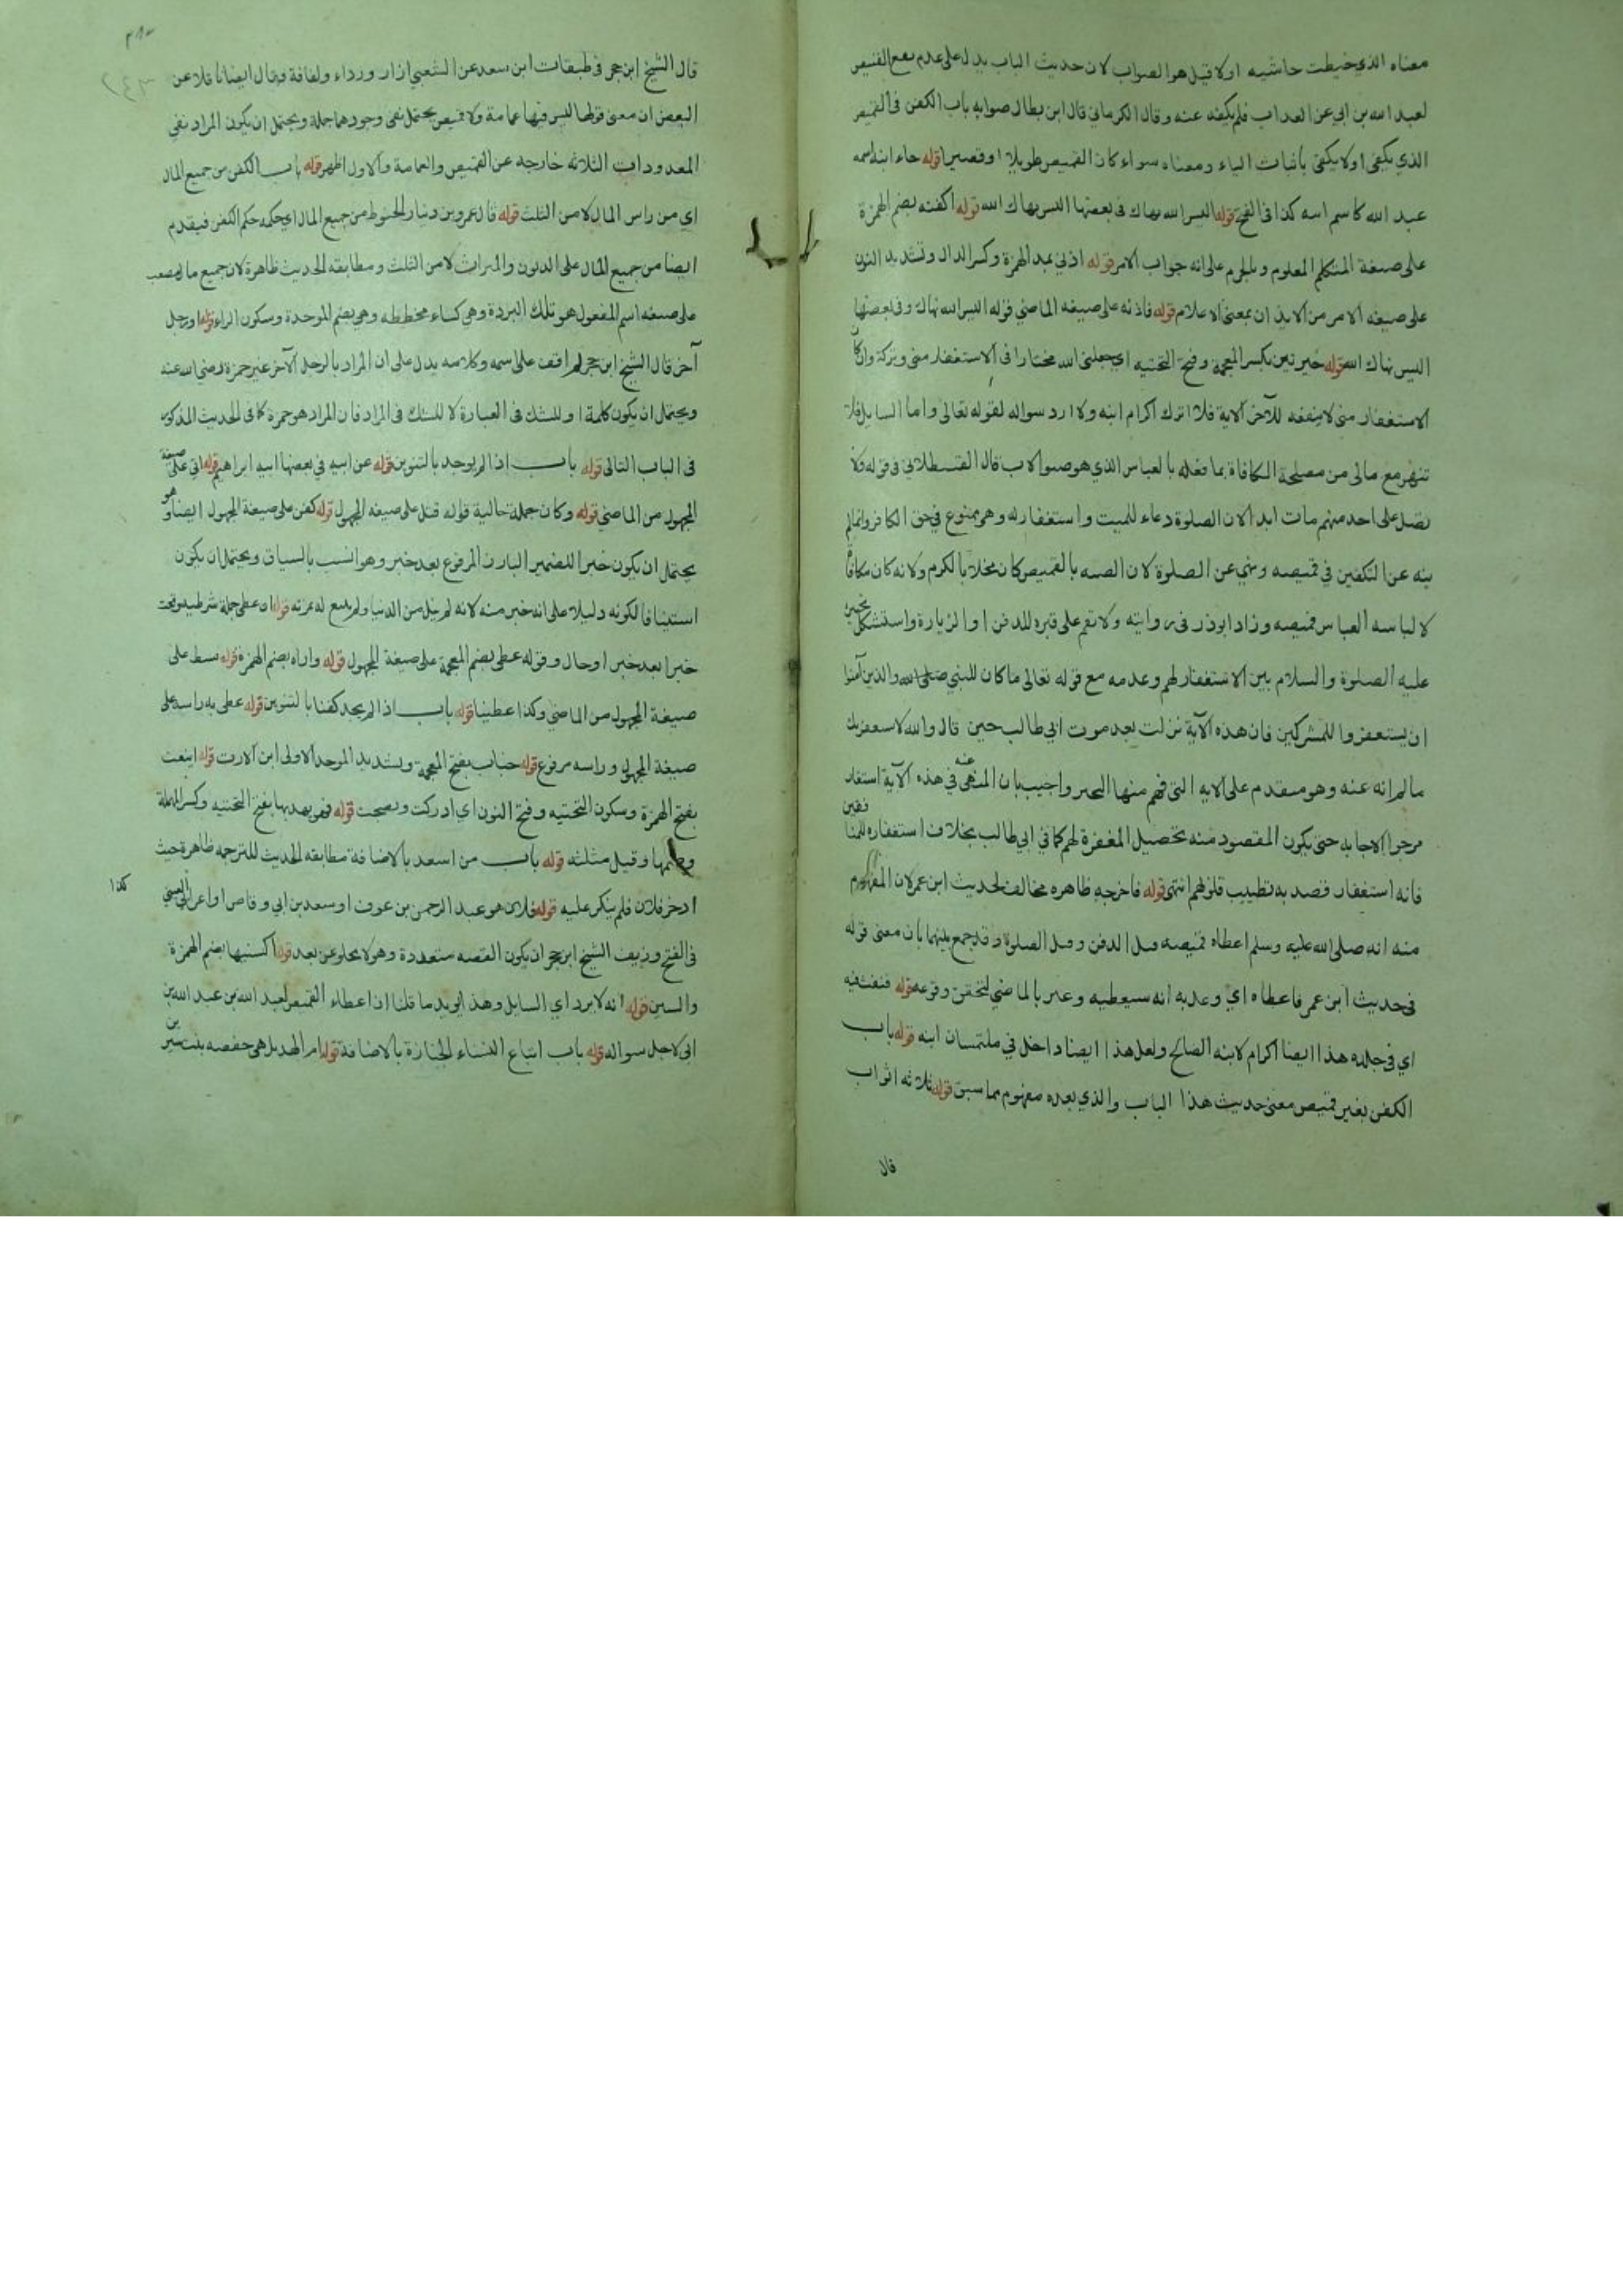 معناه الذي خيطت حاشيه اولا قيل هو الصواب لان حديث الباب يدل على عدم نفع القميص
لعبد الله بن ابي عن العذاب فلم يكفه عنه وقال الكرماني قال ابن بطال صوابه باب الكفن في القميص
الذي يكفى اولا يكفى باثبات الياء ومعناه سواء كان القميص طويلا او قصيرا قوله جاء ابنه اسمه
عبد الله كاسم ابيه كذا في الفتح قوله اليس الله نهاك في بعضها اليس نهاك الله قوله اكفنه بضم الهمزة
على صيغة المتكلم المعلوم وبالجزم على انه جواب الامر قوله اذني بمد الهمزة وكسر الذال وتشديد النون
على صيغه الامر من الايذان بمعنى الاعلام قوله فاذنه على صيغه الماضي قوله اليس الله نهاك وفي بعضها
اليس نهاك الله قوله خيرتين بكسر المعجمة وفتح التحتيه اي جعلني الله مختارا في الاستغفار مني وتركه وان كان
الاستغفار مني لا ينفعه للآخر الاية فلا اترك اكرام ابنه ولا ارد سواله لقوله تعالى واما السايل فلا
تنهر مع مالي من مصلحة المكافاة بما فعله بالعباس الذي هو صنو الاب قال القسطلاني في قوله ولا
تصل على احد منهم مات ابد الان الصلوة دعاء للميت واستغفار له وهو ممنوع في حق الكافر وانما لم
ينه عن التكفين في قميصه ونهي عن الصلوة لان الضنه بالقميص كان مخلا بالكرم ولانه كان مكافاة
لالباسه العباس قميصه وزاد ابوذر في روايته ولا تقم على قبره للدفن او الزيارة واستشكل تخييره
عليه الصلوة والسلام بين الاستغفار لهم وعدمه مع قوله تعالى ما كان للنبي صلى الله والذين آمنوا
ان يستغفروا للمشركين فان هذه الآية نزلت بعد موت ابي طالب حين قال والله لاستغفرن لك
ما لم انه عنه وهو متقدم على الايه التي فهم منها التخيير واجيب بان المنهى عنه في هذه الآية استغفار
مرجوا الاجابه حتى يكون المقصود منه تحصيل المغفرة لهم كما في ابي طالب بخلاف استغفاره للمنافقين
فانه استغفار قصد به تطييب قلوبهم انتهى قوله فاخرجه ظاهره مخالف لحديث ابن عمر لان المفهوم
منه انه صلى الله عليه وسلم اعطاه قميصه قبل الدفن وقبل الصلوة وقد جمع بينهما بان معنى قوله
في حديث ابن عمر فاعطاه اي وعد به انه سيعطيه وعبر بالماضي لتحقق وقوعه قوله فنفث فيه
اي في جلده هذا ايضا اكرام لابنه الصالح ولعل هذا ايضا داخل في ملتمسات ابنه قوله باب
الكفن بغير قميص معنى حديث هذا الباب والذي بعده مفهوم مما سبق قوله ثلاثه اثواب
قال
قال الشيخ ابن حجر في طبقات ابن سعد عن الشعبي ازار ورداء ولفافة وقال ايضا ناقلا عن
البعض ان معنى قولها ليس فيها عمامة ولا قميص يحتمل نفي وجودهما جملة ويحتمل ان يكون المراد نفي
المعدودات الثلاثه خارجه عن القميص والعمامة والاول اظهر قوله باب الكفن من جميع المال
اي من راس المال لا من الثلث قوله قال عمرو بن دينار الحنوط من جميع المال اي حكمه حكم الكفن فيقدم
ايضا من جميع المال على الديون والميراث لا من الثلث ومطابقه الحديث ظاهرة لان جميع ما لمصعب
على صيغه اسم المفعول هو تلك البردة وهي كساء مخططه وهي بضم الموحدة وسكون الراء قوله او رجل
آخر قال الشيخ ابن حجر لم اقف على اسمه وكلامه يدل على ان المراد بالرجل الآخر غير حمزة رضي الله عنه
ويحتمل ان يكون كلمة او للشك في العبارة لا للشك في المراد فان المراد هو حمزة كما في الحديث المذكور
في الباب التالي قوله باب اذا لم يوجد بالتنوين قوله عن ابيه في بعضها ابيه ابراهيم قوله اتي على صيغة
المجهول من الماضي قوله وكان جملة حالية قوله قتل على صيغه المجهول قوله كفن على صيغة المجهول ايضا وهو
يحتمل ان يكون خبرا للضمير البارز المرفوع بعد خبر وهو انسب بالسياق ويحتمل ان يكون
استينافا لكونه دليلا على انه خير منه لانه لم ينل من الدنيا ولم يدع له بمرته قوله ان عطى جملة شرطيه وقعت
خبرا بعد خبر او حال وقوله عطى بضم المعجمة على صيغة المجهول قوله واراه بضم الهمزة قوله بسط على
صيغة المجهول من الماضي وكذا عطينا قوله باب اذا لم يجد كفنا بالتنوين قوله عطى به راسه على
صيغة المجهول وراسه مرفوع قوله خباب بفتح المعجمة وتشديد الموحدة الاولى ابن الارت قوله اينعت
بفتح الهمزة وسكون التحتيه وفتح النون اي ادركت ونضجت قوله فهو يهدبها بفتح التحتيه وكسر المهملة
وضمها وقيل مثلثه قوله باب من استعد بالاضافة مطابقه الحديث للترجمه ظاهرة حيث
ادخر فلان فلم ينكر عليه قوله فلان هو عبد الرحمن بن عوف او سعد بن ابي وقاص او اعرابي
كذا
في الفتح وزيف الشيخ ابن حجر ان يكون القصه متعددة وهو لا يخلو عن بعد قوله اكسنيها بضم الهمزة
والسين قوله انه لا يرد اي السايل وهذا يويد ما قلنا ان اعطاء القميص لعبد الله بن عبد الله بن
ابي لاجل سواله قوله باب اتباع النساء الجنازة بالاضافة قوله ام الهذيل هي حفصه بنت سيرين